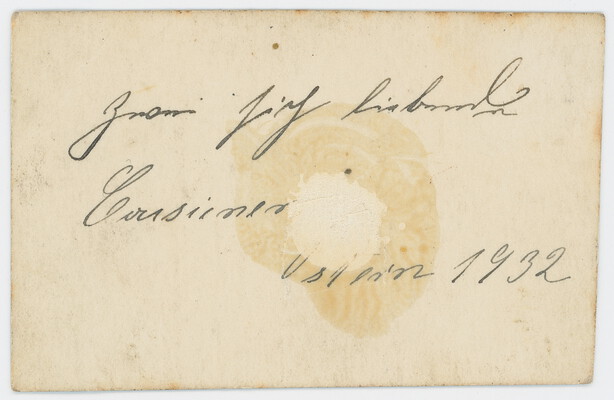 zwei sich liebende
Cousinen
Ostern 1932